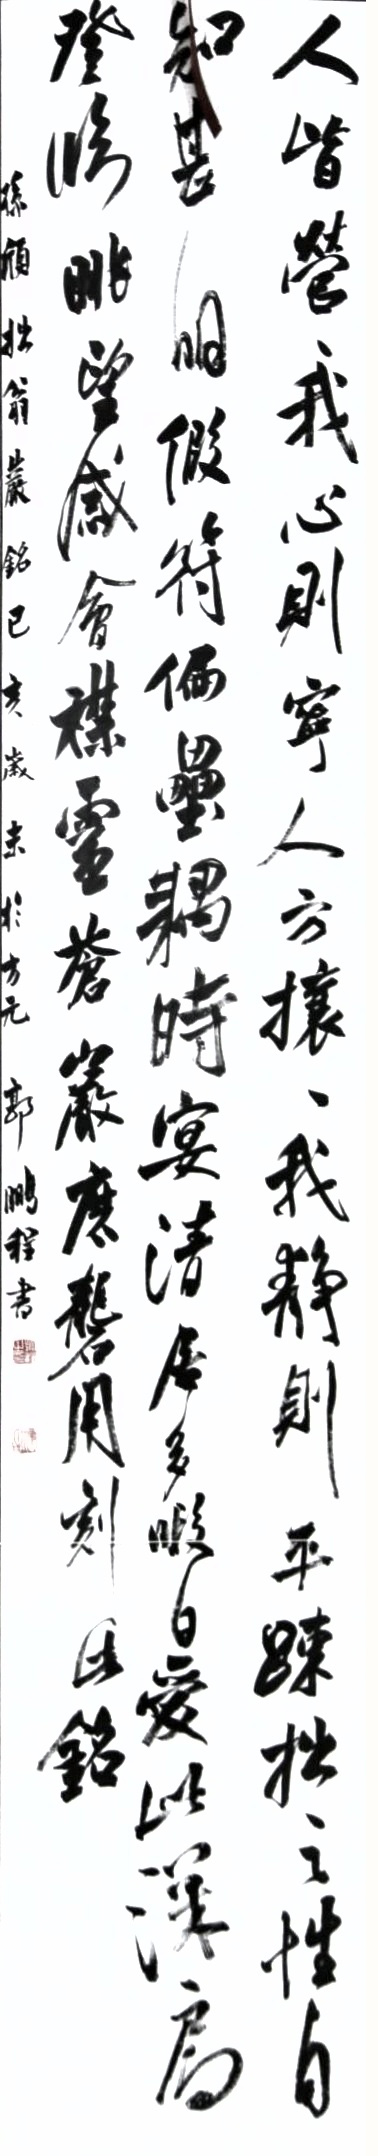 人皆營、我心則寧人方攘、我靜則平踈拙之性自
知甚明假符偭壘耦時宴清居多暇日爰此深扃
登临眺望感會襟靈蒼巖磨礱用刻此銘
孫頎拙翁巖銘己亥歲末於方元 郭鵬程書